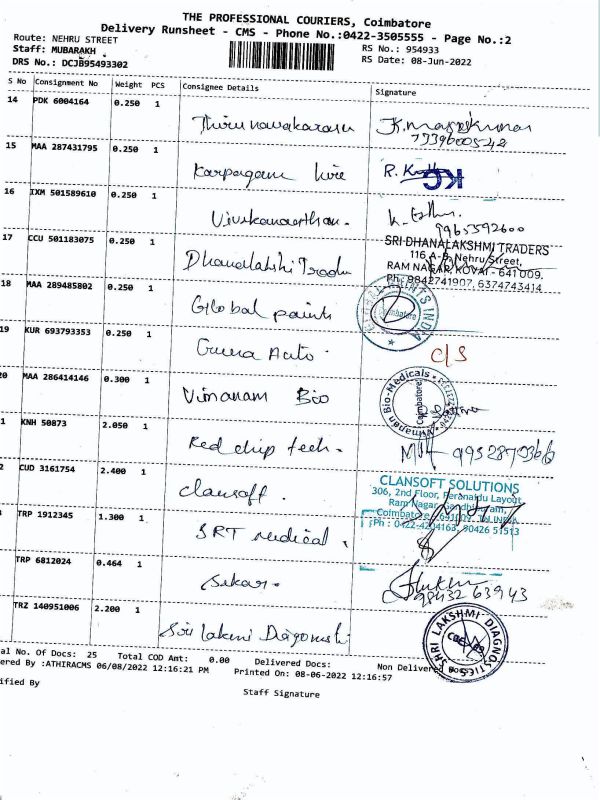 THE PROFESSIONAL COURIERS, Coimbatore
Delivery Runsheet - CMS - Phone No.:0422-3505555 - Page No.:2
Route: NEHRU STREET
RS No.: 954933
Staff: MUBARAKH .
RS Date: 08-Jun-2022
DRS No.: DCJB95493302
S No Consignment No Weight PCS Consignee Details Signature
14 PDK 6004164 0.250 1
Thirunavakarasu
7339600548
15 MAA 287431795 0.250 1
Karpagam
R.
KC
16 IXM 501589610 0.250 1
Vivekananthan.
9965592600
17 CCU 501183075 0.250 1
SRI DHANALAKSHMI TRADERS
116 A-B, Nehru Street,
RAM NAGAR, KOVAI - 641 009.
Ph: 9842741907, 6374743414
18 MAA 289485802 0.250 1
Global paints
Coimbatore
19 KUR 693793353 0.250 1
Guna Auto.
C/S
20 MAA 286414146 0.300 1
Vimanam Bio
Bio-Medicals
Coimbatore
1 KNH 50873 2.050 1
Red chip tech.
2 CUD 3161754 2.400 1
Clansoft.
CLANSOFT SOLUTIONS
306, 2nd Floor, Perumal Layout,
Ram Nagar, Gandhipuram,
Coimbatore - 641009. TN, INDIA
Ph: 0422-4204163, 90426 51513
TRP 1912345 1.300 1
SRT Medical.
TRP 6812024 0.464 1
Sekar.
98432 63943
TRZ 140951006 2.200 1
Sri lakmi
SHRI LAKSHMI DIAGNOSTICS
al No. Of Docs: 25 Total COD Amt: 0.00 Delivered Docs: Non Delivered Docs:
ered By :ATHIRACMS 06/08/2022 12:16:21 PM Printed On: 08-06-2022 12:16:57
ified By
Staff Signature